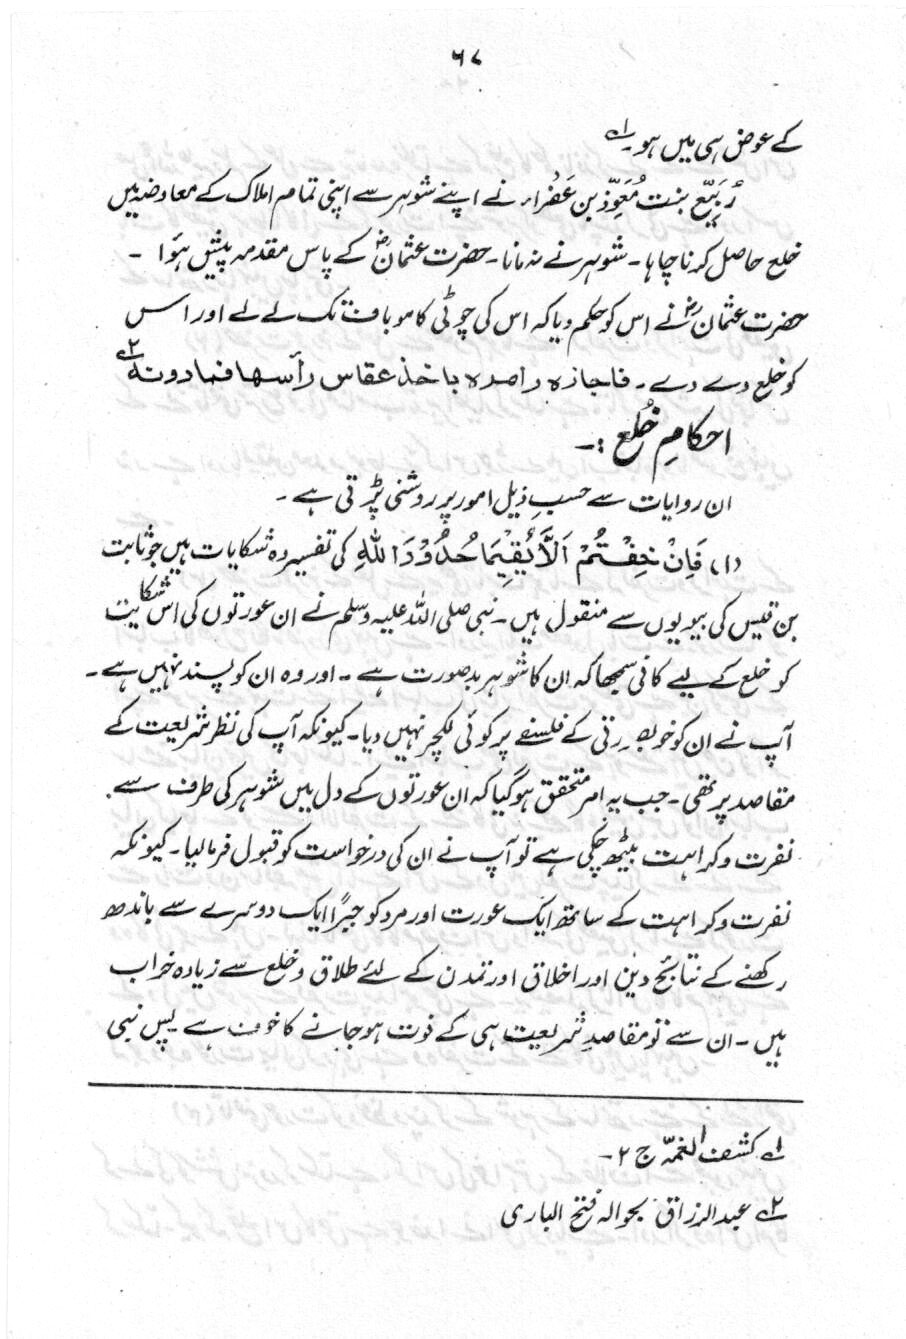 ۶۷
کے عوض ہی میں ہو۔ لہ
رُبَیِّع بنت مُعَوِّذ بن عَفْراء نے اپنے شوہر سے اپنی تمام املاک کے معاوضہ میں
خلع حاصل کرنا چاہا۔ شوہر نے نہ مانا۔ حضرت عثمانؓ کے پاس مقدمہ پیش ہوا ۔
حضرت عثمانؓ نے اس کو حکم دیا کہ اس کی چوٹی کا موباف تک لے لے اور اس
کو خلع دے دے۔ فاجازہ وامرہ باخذ عقاس رأسھا فمادونہ ۲ے
احکامِ خُلع :۔
ان روایات سے حسبِ ذیل امور پر روشنی پڑتی ہے ۔
(۱) فَاِنْ خِفْتُمْ اَلَّا یُقِیْمَا حُدُوْدَ اللهِ کی تفسیر وہ شکایات ہیں جو ثابت
بن قیس کی بیویوں سے منقول ہیں۔ نبی صلی اللہ علیہ وسلم نے ان عورتوں کی اس شکایت
کو خلع کے لیے کافی سمجھا کہ ان کا شوہر بدصورت ہے ۔ اور وہ ان کو پسند نہیں ہے ۔
آپ نے ان کو خوبصورتی کے فلسفے پر کوئی لکچر نہیں دیا۔ کیونکہ آپ کی نظر شریعت کے
مقاصد پر تھی۔ جب یہ امر متحقق ہو گیا کہ ان عورتوں کے دل میں شوہر کی طرف سے
نفرت و کراہت بیٹھ چکی ہے تو آپ نے ان کی درخواست کو قبول فرمالیا۔ کیونکہ
نفرت و کراہت کے ساتھ ایک عورت اور مرد کو جبراً ایک دوسرے سے باندھ
رکھنے کے نتائج دین اور اخلاق اور تمدن کے لئے طلاق و خلع سے زیادہ خراب
ہیں۔ ان سے تو مقاصدِ شریعت ہی کے فوت ہو جانے کا خوف ہے۔ پس نبی
لہ کشف الغمّہ ج ۲۔
۲ے عبدالرزاق بحوالہ فتح الباری